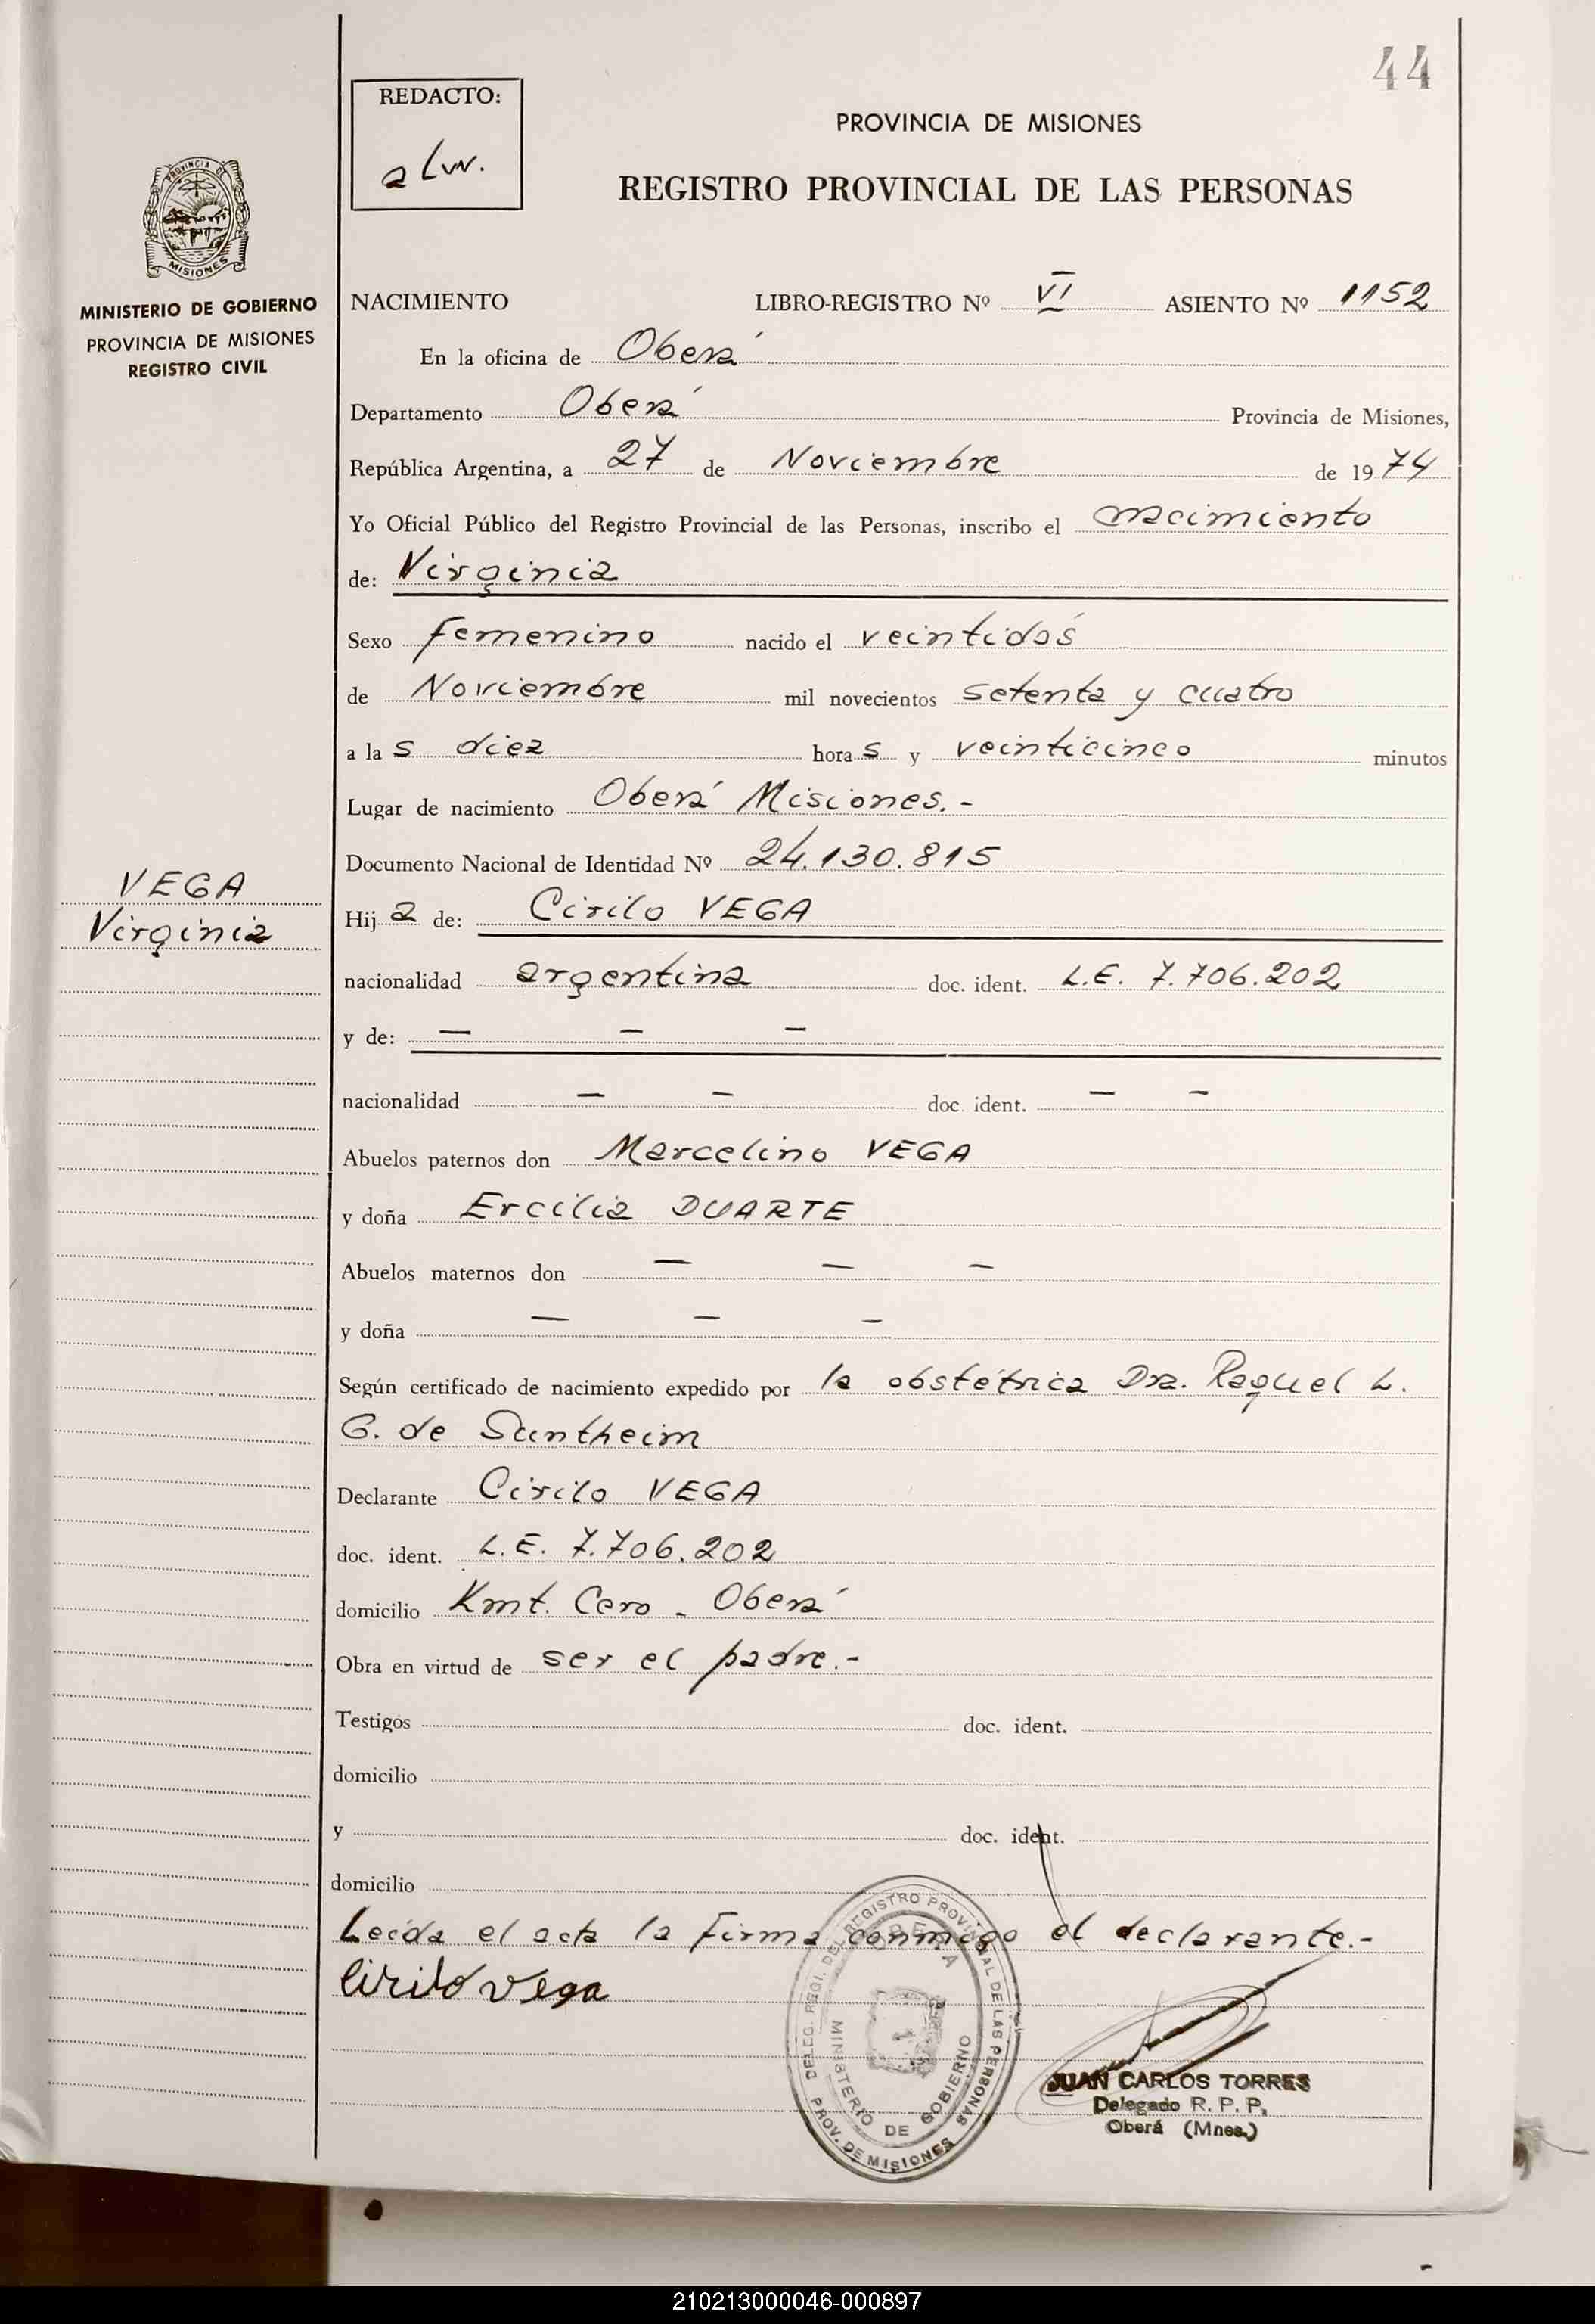 44
REDACTO:
PROVINCIA DE MISIONES
REGISTRO PROVINCIAL DE LAS PERSONAS
PROVINCIA D
MISIONES
MINISTERIO DE GOBIERNO
PROVINCIA DE MISIONES
REGISTRO CIVIL
NACIMIENTO LIBRO-REGISTRO Nº VI ASIENTO Nº 1152
En la oficina de Oberá
Departamento Oberá Provincia de Misiones,
República Argentina, a 27 de Noviembre de 1974
Yo Oficial Público del Registro Provincial de las Personas, inscribo el nacimiento
de: Virginia
Sexo femenino nacido el veintidós
de Noviembre mil novecientos setenta y cuatro
a las diez horas y veinticinco minutos
Lugar de nacimiento Oberá Misiones.-
Documento Nacional de Identidad Nº 24.130.815
VEGA
Virginia
Hija de: Cirilo VEGA
nacionalidad argentina doc. ident. L.E. 7.706.202
y de: — — —
nacionalidad — — doc. ident. — —
Abuelos paternos don Marcelino VEGA
y doña Ercilia DUARTE
Abuelos maternos don — — —
y doña — — —
Según certificado de nacimiento expedido por la obstétrica Dra. Raquel L.
G. de Suntheim
Declarante Cirilo VEGA
doc. ident. L.E. 7.706.202
domicilio Kmt. Cero - Oberá
Obra en virtud de ser el padre.-
Testigos doc. ident.
domicilio
y doc. ident.
domicilio
Leída el acta la firma conmigo el declarante.-
Cirilo Vega
DELEG. REGI. DEL REGISTRO PROVINCIAL DE LAS PERSONAS
OBERA
MINISTERIO DE GOBIERNO
PROV. DE MISIONES
JUAN CARLOS TORRES
Delegado R. P. P.
Oberá (Mnes.)
210213000046-000897